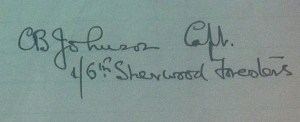 CB Johnson Capt.
1/6th Sherwood Foresters